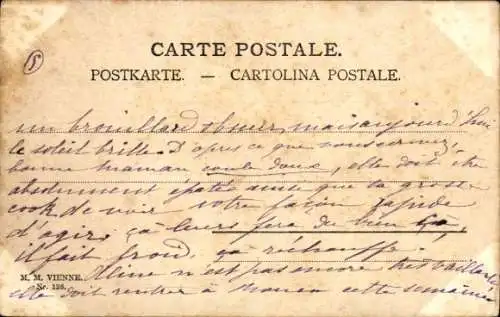 5
CARTE POSTALE.
POSTKARTE. — CARTOLINA POSTALE.
un brouillard obscur, mais aujourd'hui
le soleil brille. D'après ce que vous écrivez,
bonne maman doit être
absolument épatée ainsi que ta grosse
cook de voir votre façon rapide
d'agir, ça leurs fera du bien
il fait froid, ça réchauffe.
M. M. VIENNE. n'est pas encore très vaillante
Nr. 128. elle doit rentrer à cette semaine